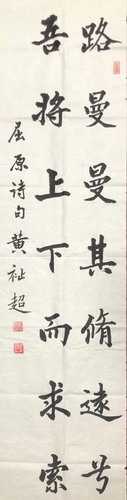 路曼曼其脩遠兮
吾将上下而求索
屈原诗句黄祉超